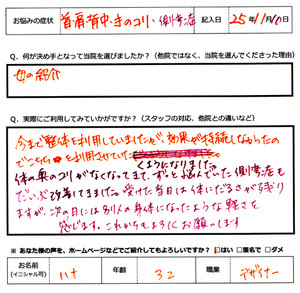 お悩みの症状 首肩背中、手のコリ、側弯症 記入日 25年11月10日
Q、何が決め手となって当院を選びましたか?(他院ではなく、当院を選んでくださった理由)
母の紹介
Q、実際にご利用してみていかがですか?(スタッフの対応、他院との違いなど)
今まで整体を利用していましたが、効果が持続しなかったの
でこちらを利用させていただ
くようになりました。
体の奥のコリがなくなってきて、ずっと悩んでいた側弯症も
だいぶ改善してきました。受けた当日は少し体にだるさが残り
ますが、次の日には別人の身体になったような軽さを
感じます。これからもよろしくお願いします
※ あなた様の声を、ホームページなどでご紹介してもよろしいですか? はい □匿名で □ダメ
お名前 (イニシャル可) 年齢 32 職業 デザイナー